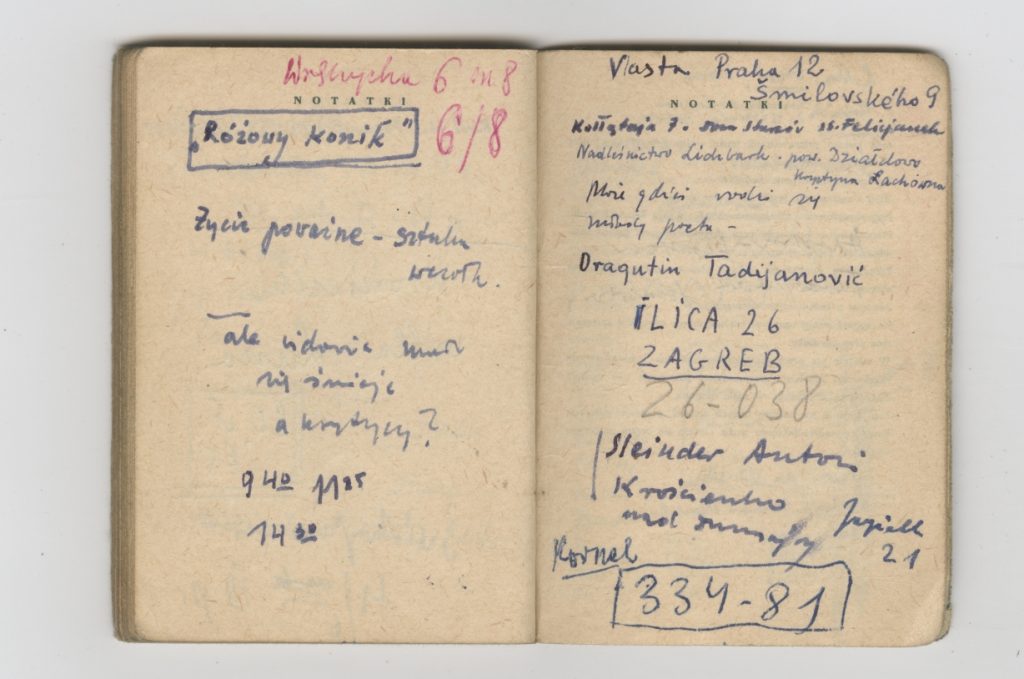 6 m 8
NOTATKI
"Różowy konik"
6/8
Życie poważne - sztuka
wesoła.
ale widownia
się śmieje
a krytycy?
9 40 11 25
14 30
Vlasta Praha 12
Šmilovského 9
NOTATKI
Kołłątaja 7. Felicjanek
Nadleśnictwo Lidzbark - pow. Działdowo
Krystyna Lachówna
Może gdzieś rodzi się
młody poeta -
Dragutin Tadijanović
ILICA 26
ZAGREB
26-038
Antoni
Krościenko
nad Dunajcem
21
Kornel
334-81